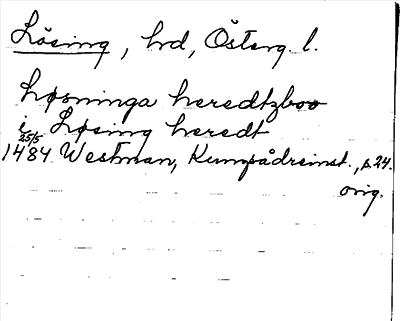 Lösing, hrd, Österg. l.
Løsninga heredtzboo
i Løsing heredt
25/5 1484 Westman, Kungsådreinst., s. 24.
orig.